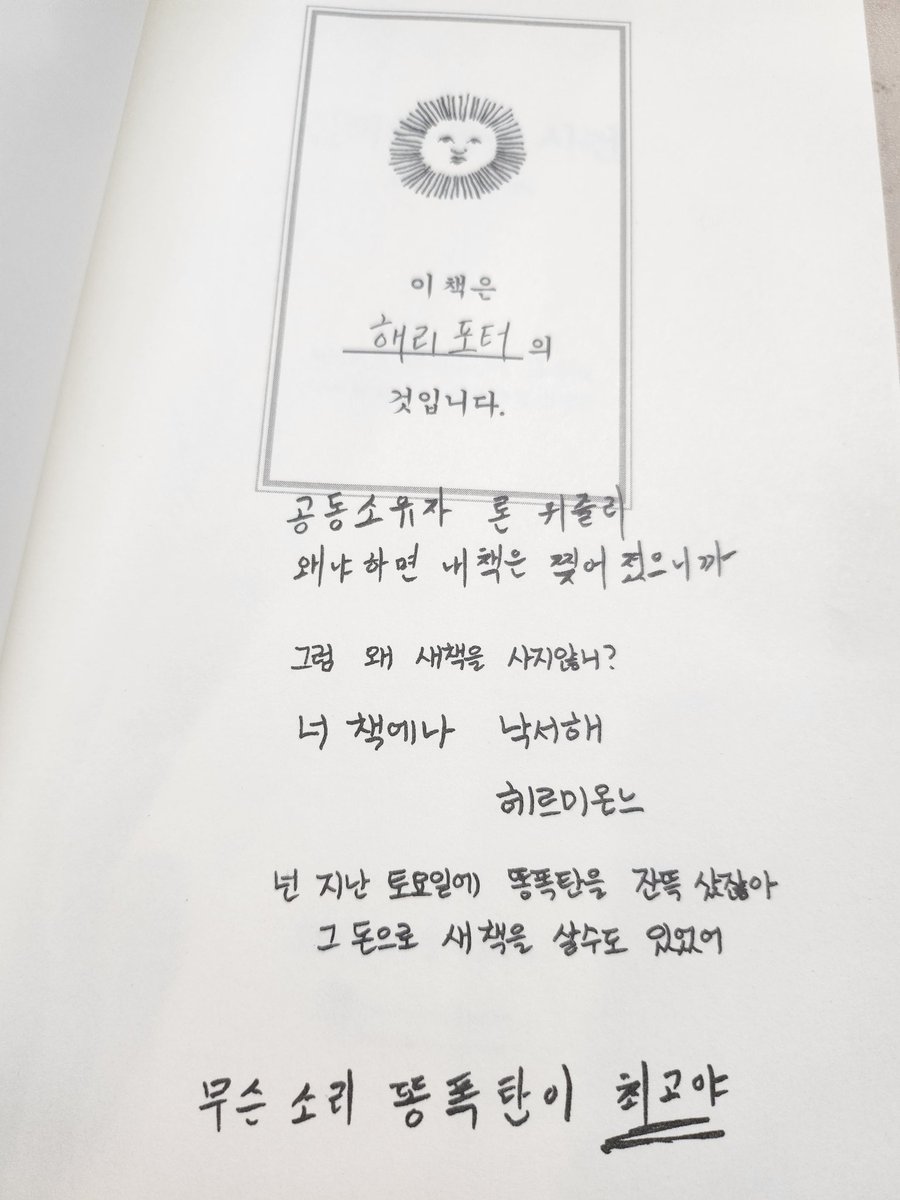 이 책은
해리 포터 의
것입니다.
공동소유자 론 위즐리
왜냐하면 내 책은 찢어 졌으니까
그럼 왜 새책을 사지않니?
너 책에나 낙서해
헤르미온느
넌 지난 토요일에 똥폭탄을 잔뜩 샀잖아
그 돈으로 새 책을 살수도 있었어
무슨 소리 똥폭탄이 최고야